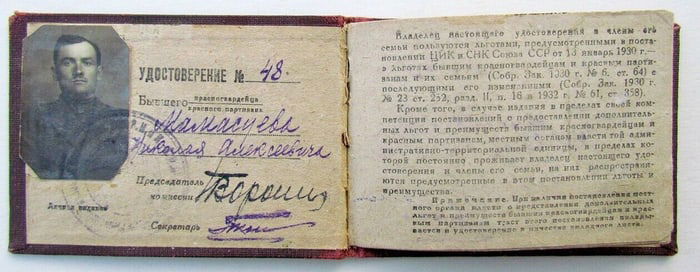 УДОСТОВЕРЕНИЕ № 48.
Бывшего красногвардейца
красного партизана
Николая Алексеевича
Председатель
комиссии
Личная подпись
Секретарь
Владелец настоящего удостоверения и члены его
семьи пользуются льготами, предусмотренными в поста-
новлении ЦИК и СНК Союза ССР от 13 января 1930 г.—
о льготах бывшим красногвардейцам и красным парти-
занам и их семьям (Собр. Зак. 1930 г. № 6, ст. 64) с
последующими его изменениями (Собр. Зак. 1930 г.
№ 23 ст. 252, разд. II, п. 16 и 1932 г. № 61, ст. 358).
Кроме того, в случае издания в пределах своей ком-
петенции постановлений о предоставлении дополнитель-
ных льгот и преимуществ бывшим красногвардейцам и
красным партизанам, местным органам власти той адми-
нистративно-территориальной единицы, в пределах ко-
торой постоянно проживает владелец настоящего удо-
стоверения и члены его семьи, на них распространя-
ются предусмотренные в этом постановлении льготы и
преимущества.
Примечание. При наличии постановления мест-
ного органа власти о предоставлении дополнительных
льгот и преимуществ бывшим красногвардейцам и крас-
ным партизанам текст этого постановления вклады-
вается в удостоверение в качестве вкладного листа.